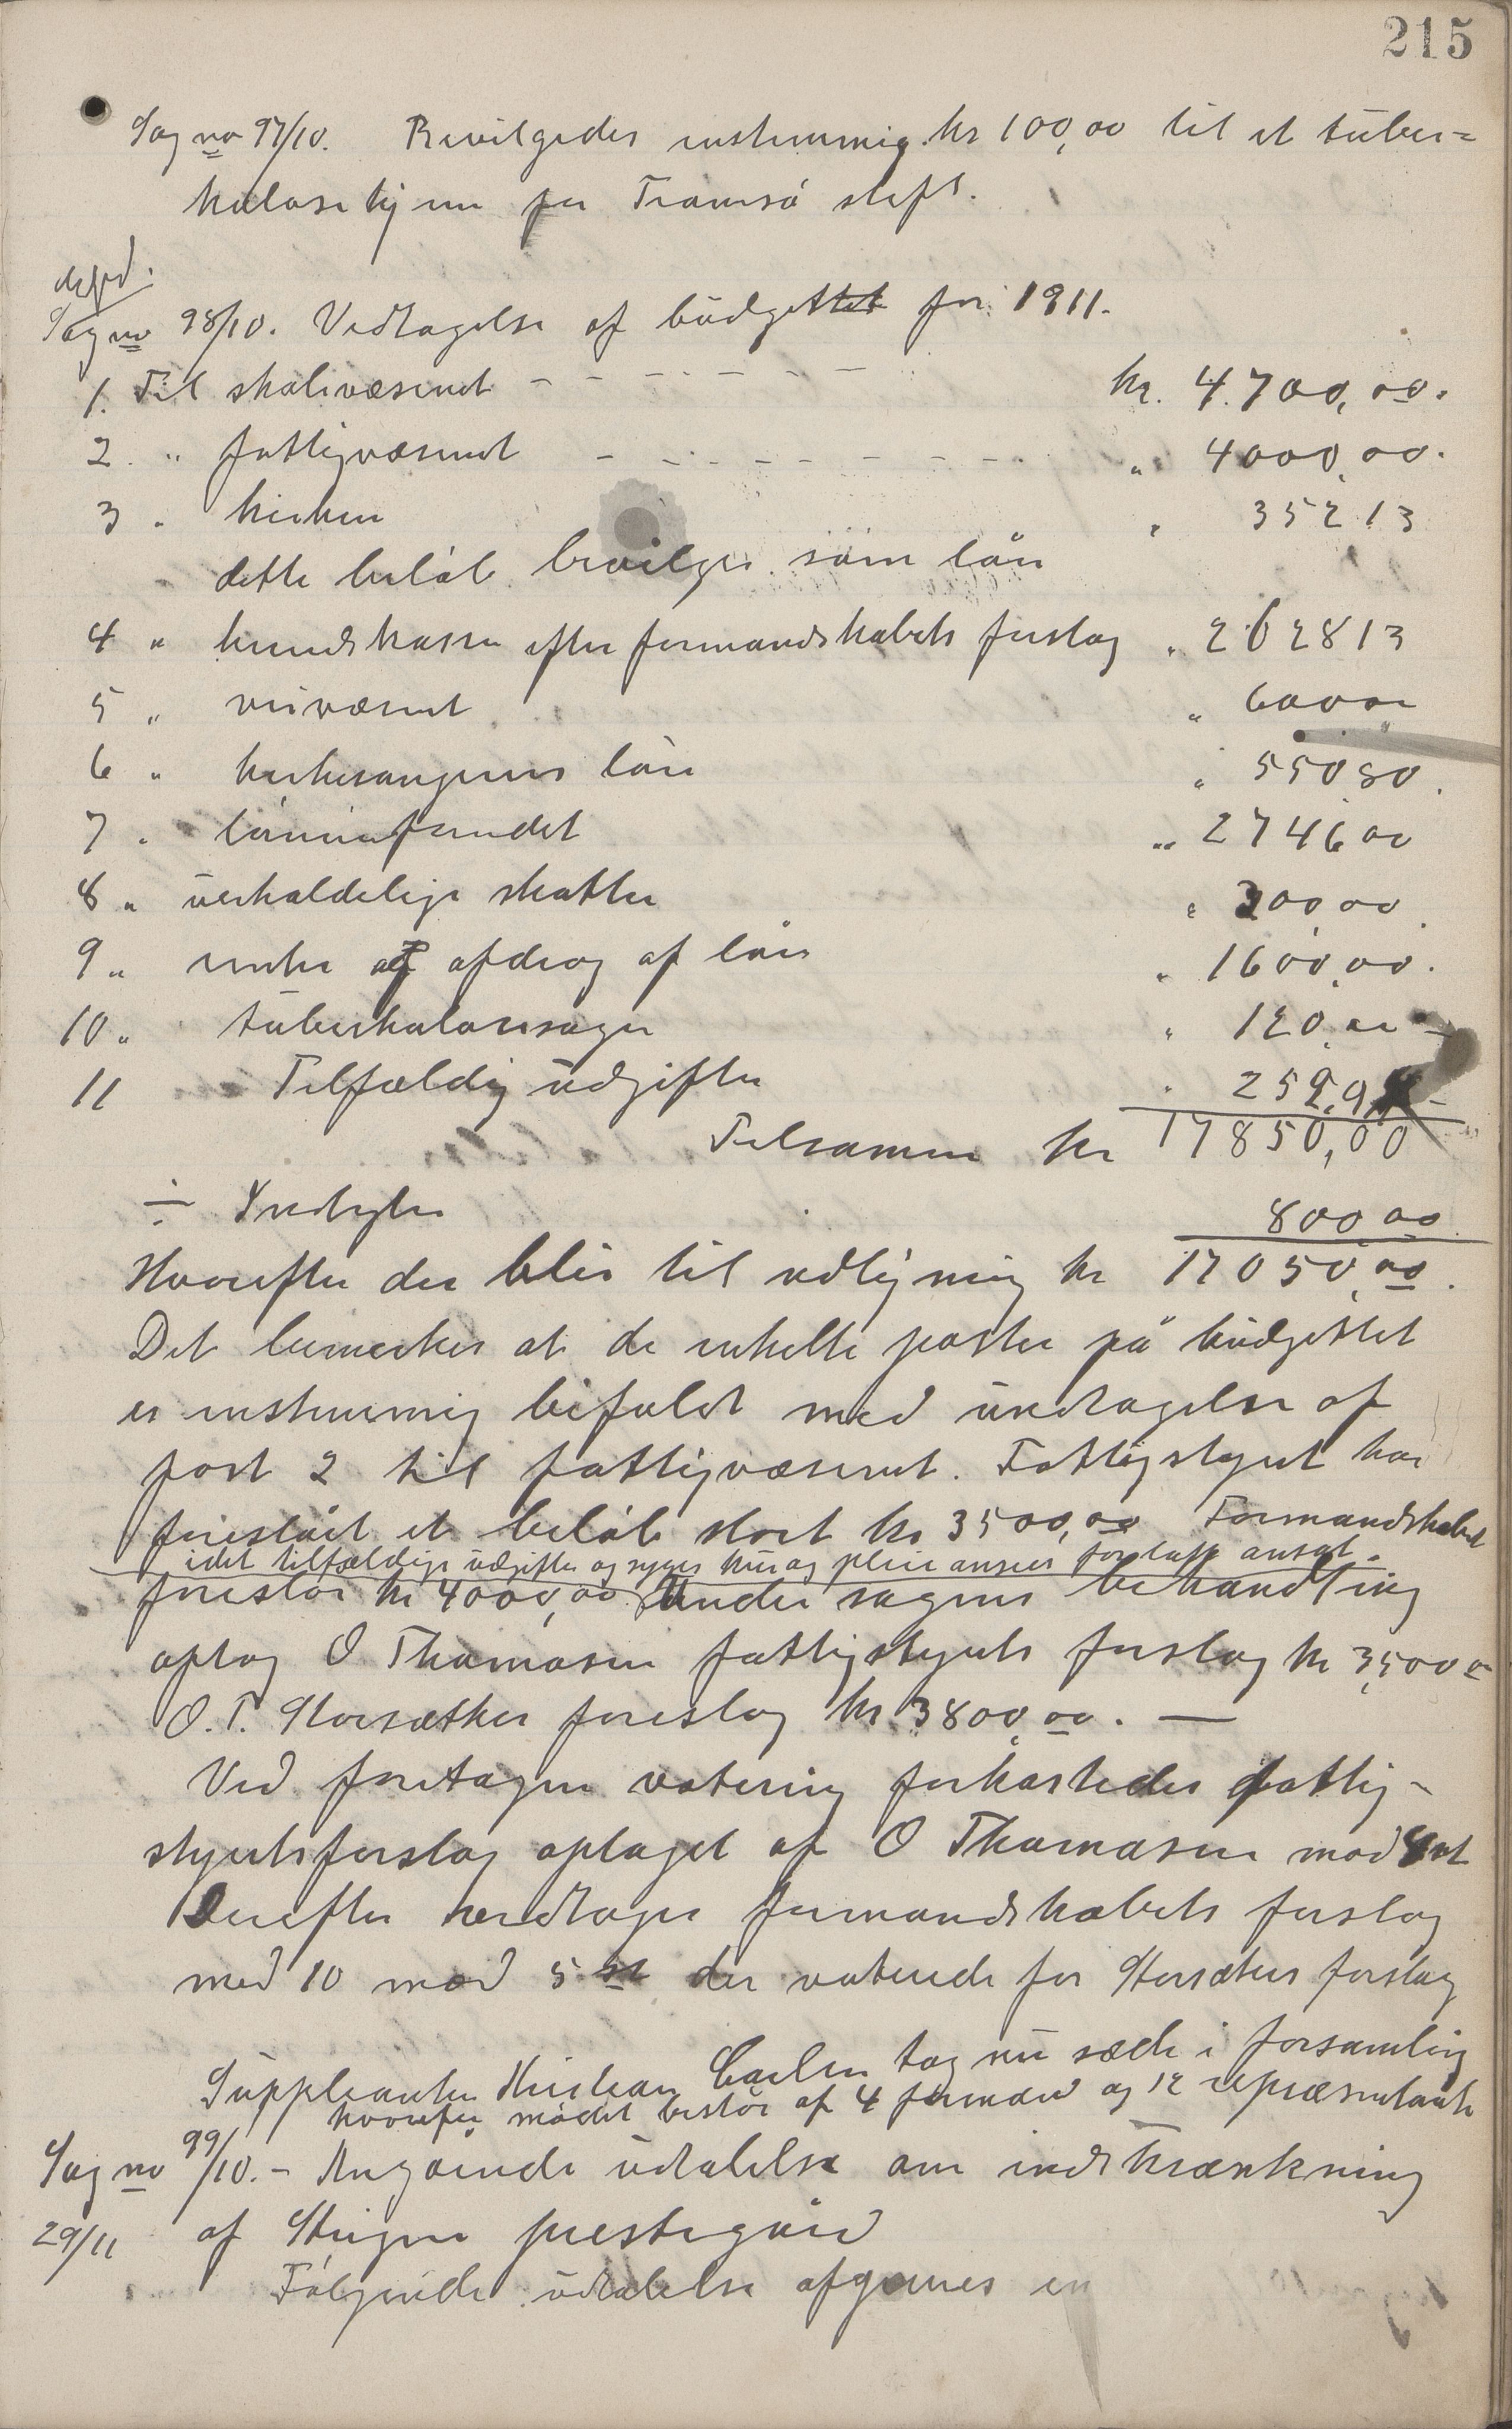 215
Sag no 97/10. Bevilgedes enstemmig kr 100,00 til et tuber=
kulosehjem for Tromsø stift.
Sag no 98/10. Vedtagelse af büdgettet for 1911.
1. Til skolevæsenet - - - - - - - kr. 4.700,00.
2. " fattigvæsenet - - - - - - - - - " 4000,00.
3 " kirken " 352 13
dette beløb bevilges som lån
4 " heredskassen efter formandskabets forslag " 2628 13
5 " veivæsenet " 600 00
6 " kirkesangerens løn " 550 80.
7 " lønningsfondet " 2746 00
8 " uerholdelige skatter " 300 00
9 " renter og afdrag af lån " 1600,00.
10 " tuberkulosesager " 120,00 -
11 Tilfældig üdgifter " 252,94 -
Tilsammen kr 17850,00
÷ Indtegter 800,00
Hvorefter der blir til udligning kr 17050,00.
Det bemerkes at de enkelte poster på büdgettet
er enstemmig bifaldt med ündtagelse af
post 2 til fattigvæsenet. Fattigstyret har
foreslået et beløb stort kr 3500,00 Formandskabet
idet tilfældige üdgifter og syges kür og pleie ansees for lavt ansat.
foreslår kr 4000,00. Under sagens behandling
optog O Thomasen fattigstyrets forslag kr 3500 00
O. T. Storsæther foreslog kr 3800,00. —
Ved foretagen votering forkastedes fattig-
styretsforslag optaget af O Thomasen mod 4 st
Derefter vedtages formandskabets forslag
med 10 mod 5 st der voterede for Storsæters forslag
Süppleanten Kristian Carlsen tog nü sæde i forsamling
hvorefter mødet består af 4 formænd og 12 repræsentanter
Sag no 99/10. - Angående üdtalelse om indskrænkning
29/11 af Steigen prestegård
Følgende üdtalelse afgaves en